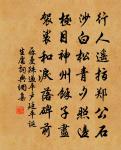 行人遥指郑公石
沙白松青夕照邊
極目神州餘子盡
袈裟和淚落碑前
蘇曼殊過平户延平诞
生處詞典網集